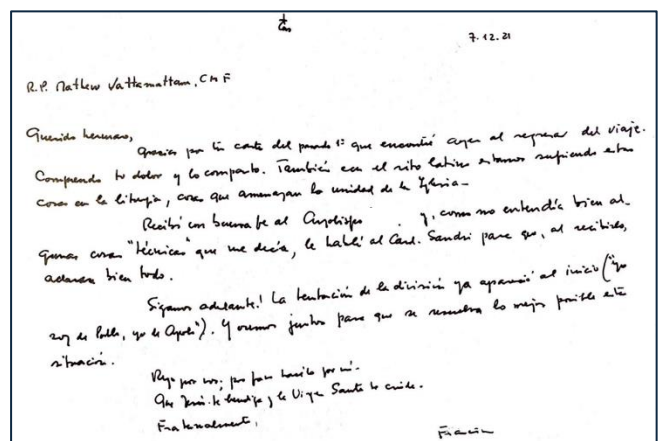 7.12.21
R.P. Mathew Vattamattam, CMF
Querido hermano,
Gracias por tu carta del pasado 1º que encontré ayer al regresar del viaje.
Comprendo tu dolor y lo comparto. También con el rito latino estamos sufriendo estas
cosas en la liturgia, cosas que amenazan la unidad de la Iglesia-
Recibí con buena fe al Arzobispo . y, como no entendía bien al-
gunas cosas "técnicas" que me decía, le hablé al Card. Sandri para que, al recibirlo,
aclarara bien todo.
Sigamos adelante! La tentación de la división ya apareció al inicio ("yo
soy de Pablo, yo de Apolo"). Y oremos juntos para que se resuelva lo mejor posible esta
situación.
Rezo por vos; por favor hacelo por mí.
Que Jesús te bendiga y la Virgen Santa te cuide.
Fraternalmente,